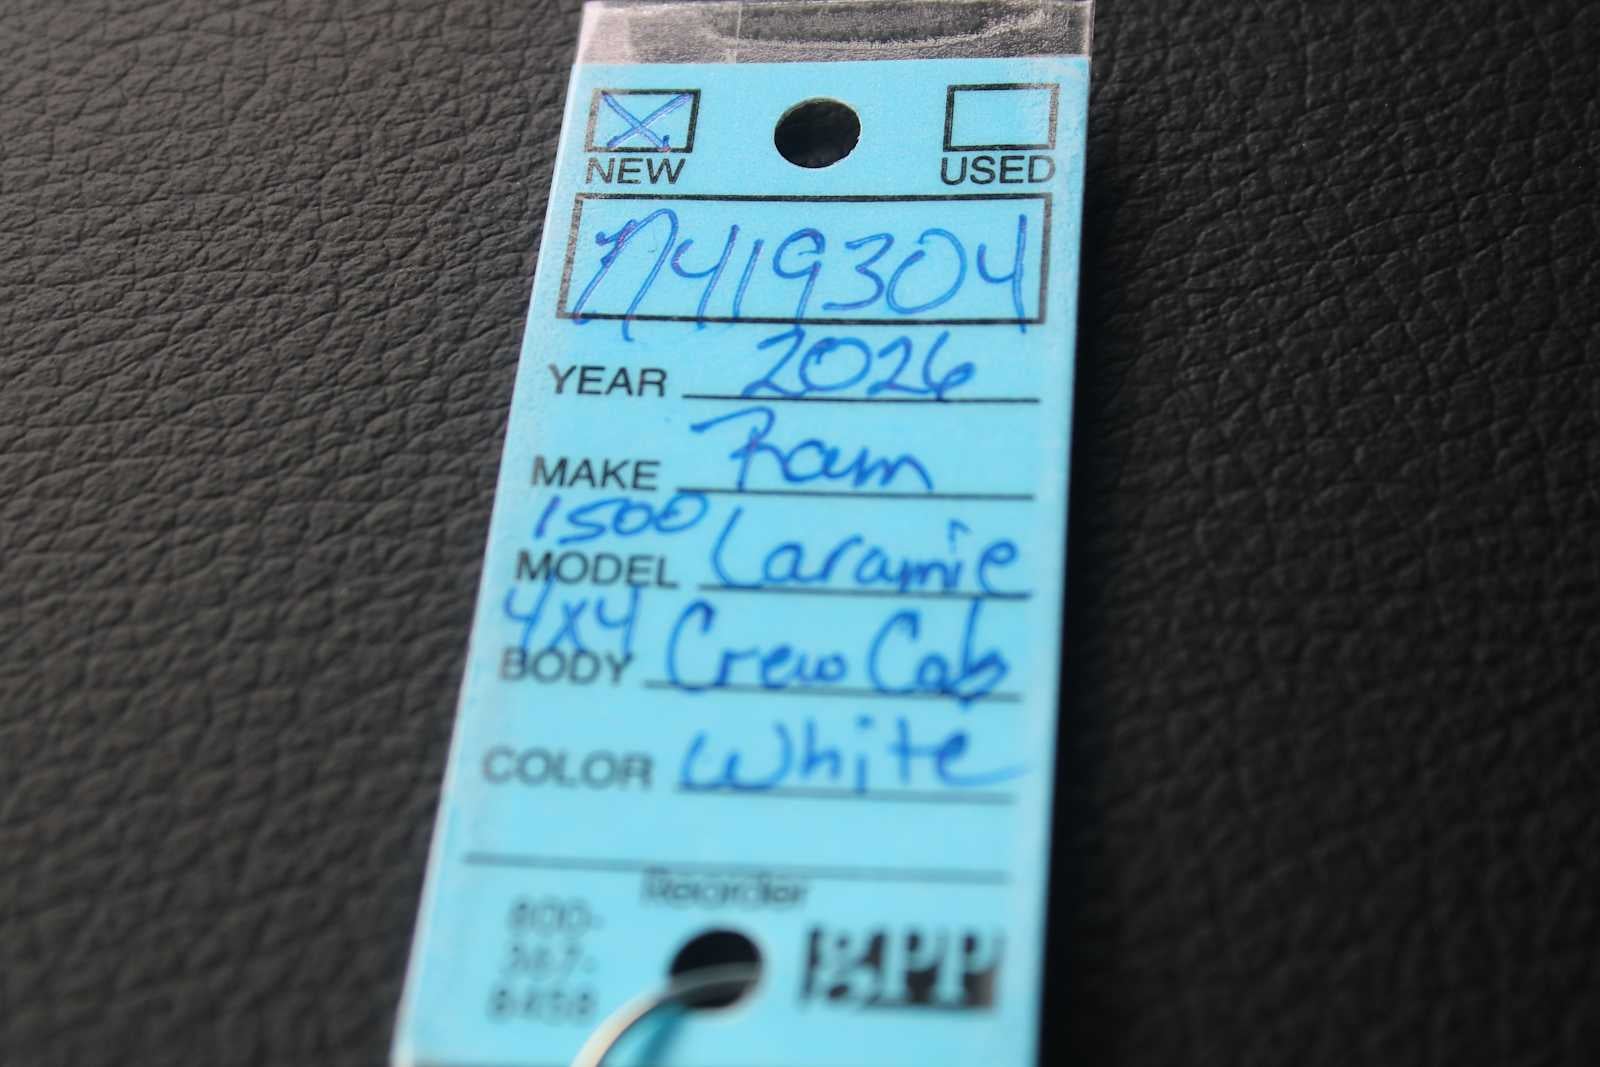 NEW USED
N419304
YEAR 2026
MAKE Ram
1500 Laramie
MODEL
4x4 Crew Cab
BODY
COLOR White
Reorder
800-
367-
8458